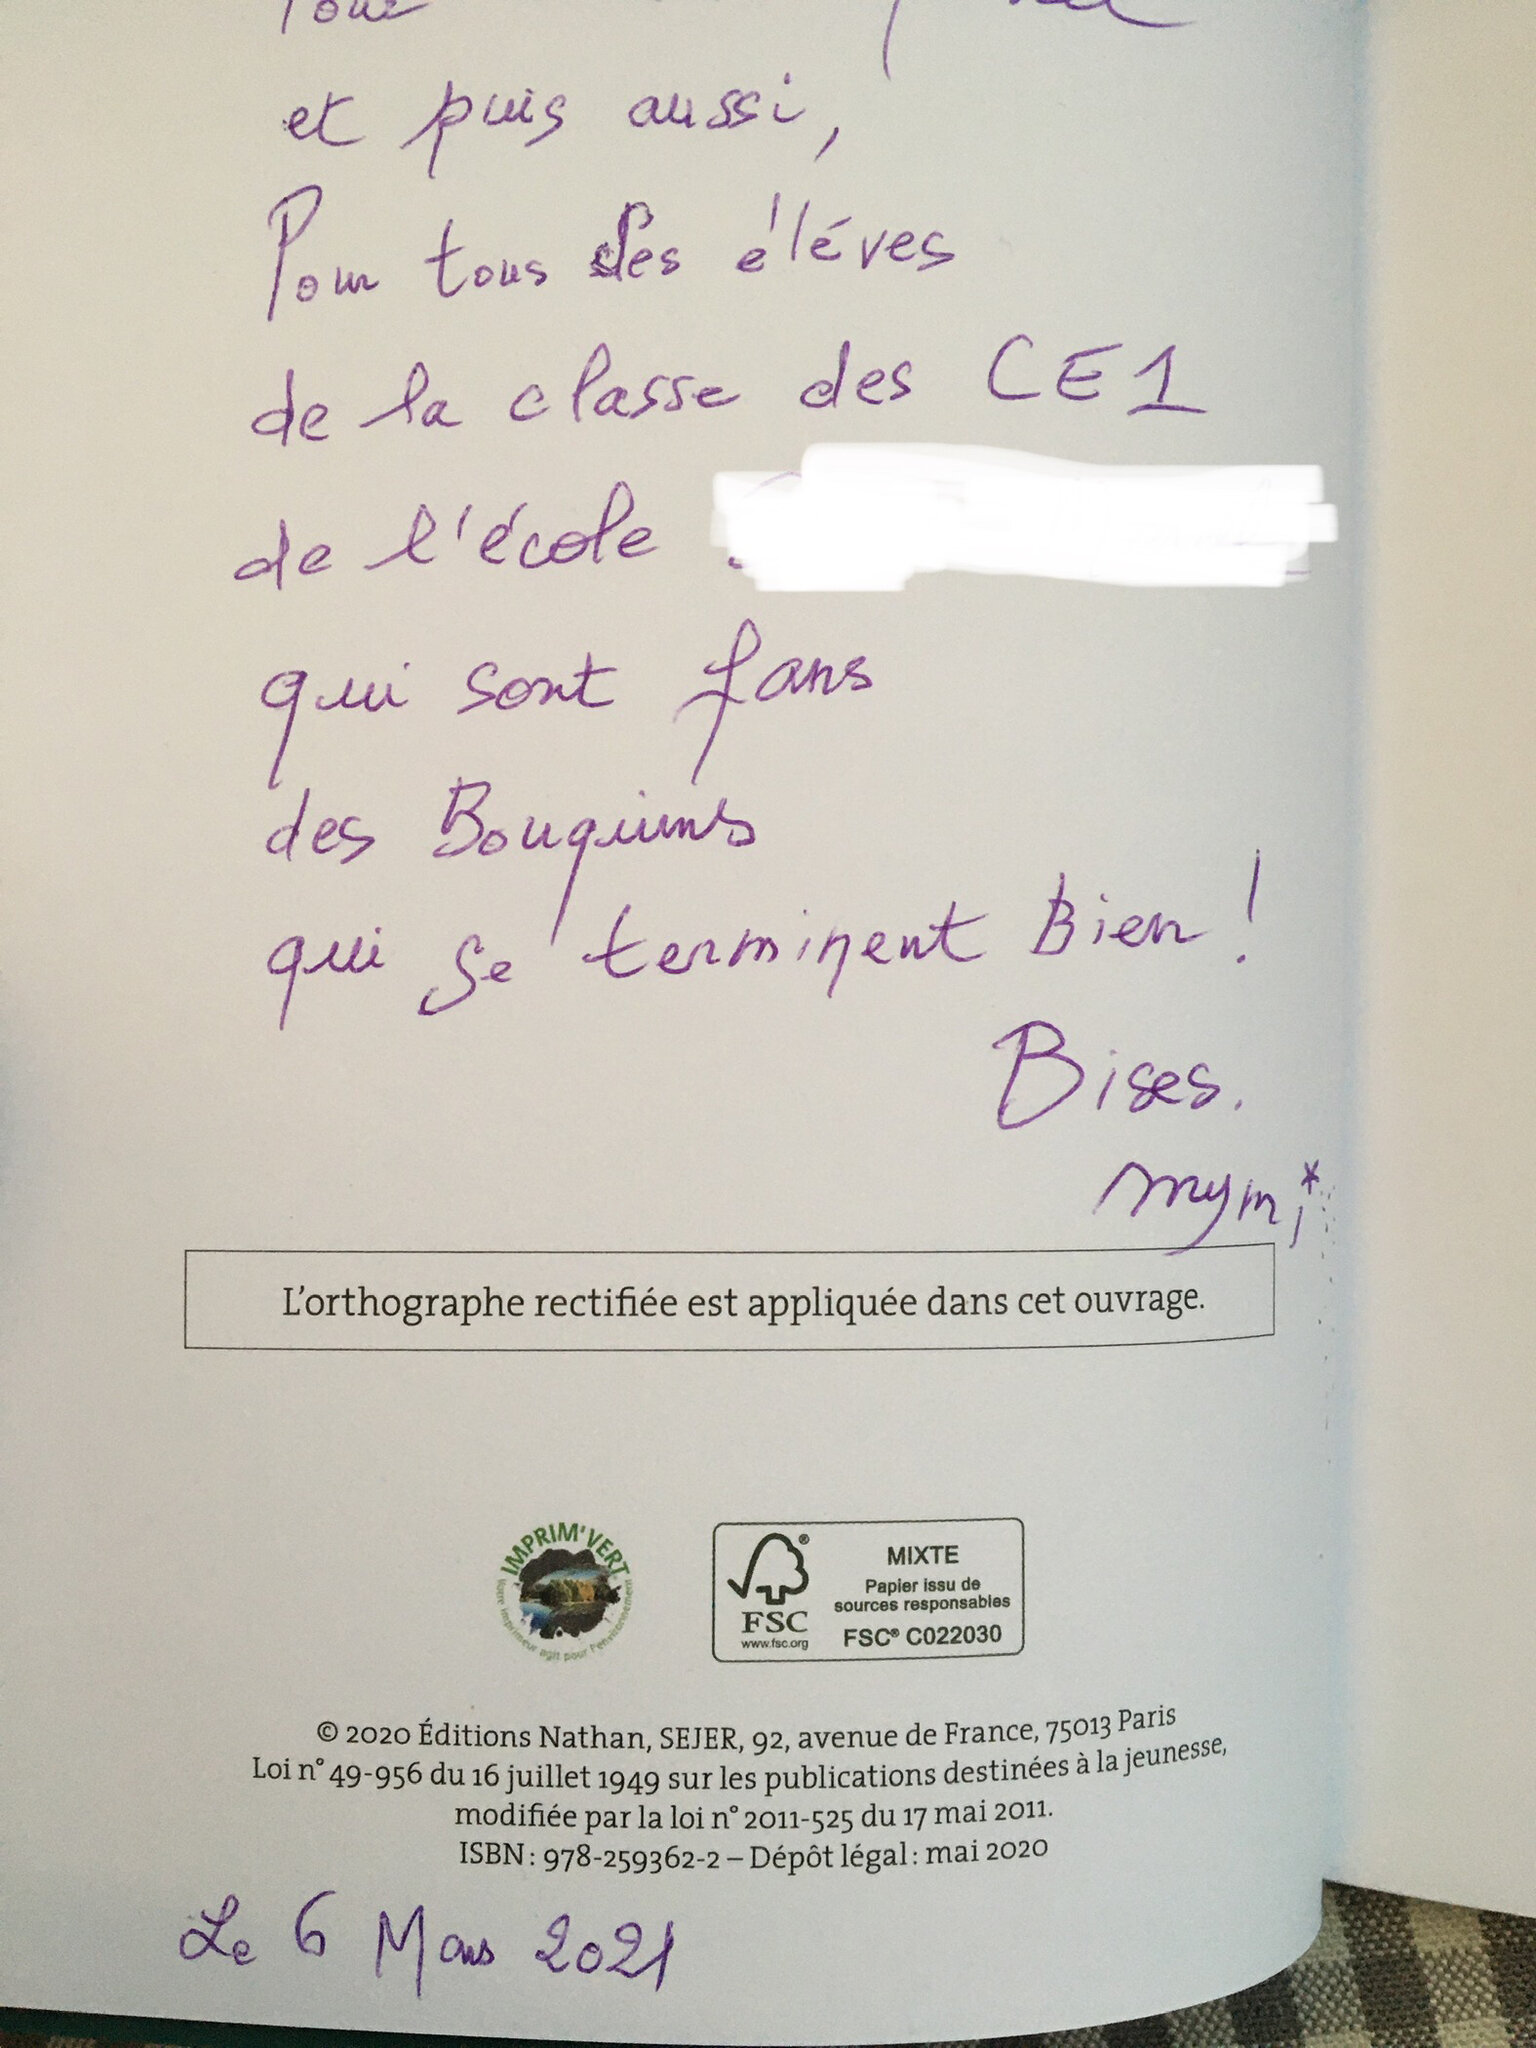 Pour
et puis aussi,
Pour tous les éléves
de la classe des CE1
de l'école
qui sont fans
des Bouquins
qui se terminent Bien !
Bises.
mymi*
L'orthographe rectifiée est appliquée dans cet ouvrage.
IMPRIM'VERT®
votre imprimeur agit pour l'environnement
FSC®
www.fsc.org
MIXTE
Papier issu de
sources responsables
FSC® C022030
© 2020 Éditions Nathan, SEJER, 92, avenue de France, 75013 Paris
Loi n° 49-956 du 16 juillet 1949 sur les publications destinées à la jeunesse,
modifiée par la loi n° 2011-525 du 17 mai 2011.
ISBN : 978-259362-2 – Dépôt légal : mai 2020
Le 6 Mars 2021